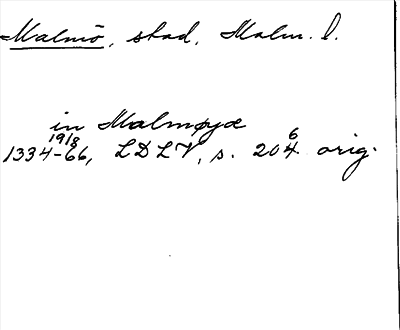 Malmö, stad, Malm. l.
in Malmøyæ
1334 19/8 -66, LDLV, s. 204 6 orig.